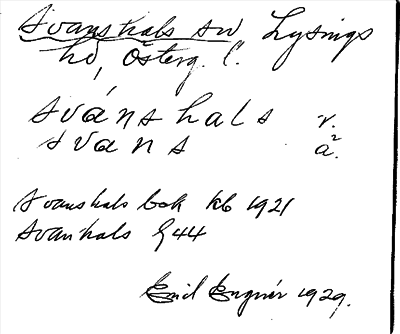 Svanshals sn Lysings
hd, Österg. l.
svánshals r.
svans å.
Svanshals bok kb 1921
Svanhals G44
Emil Engnér 1929.